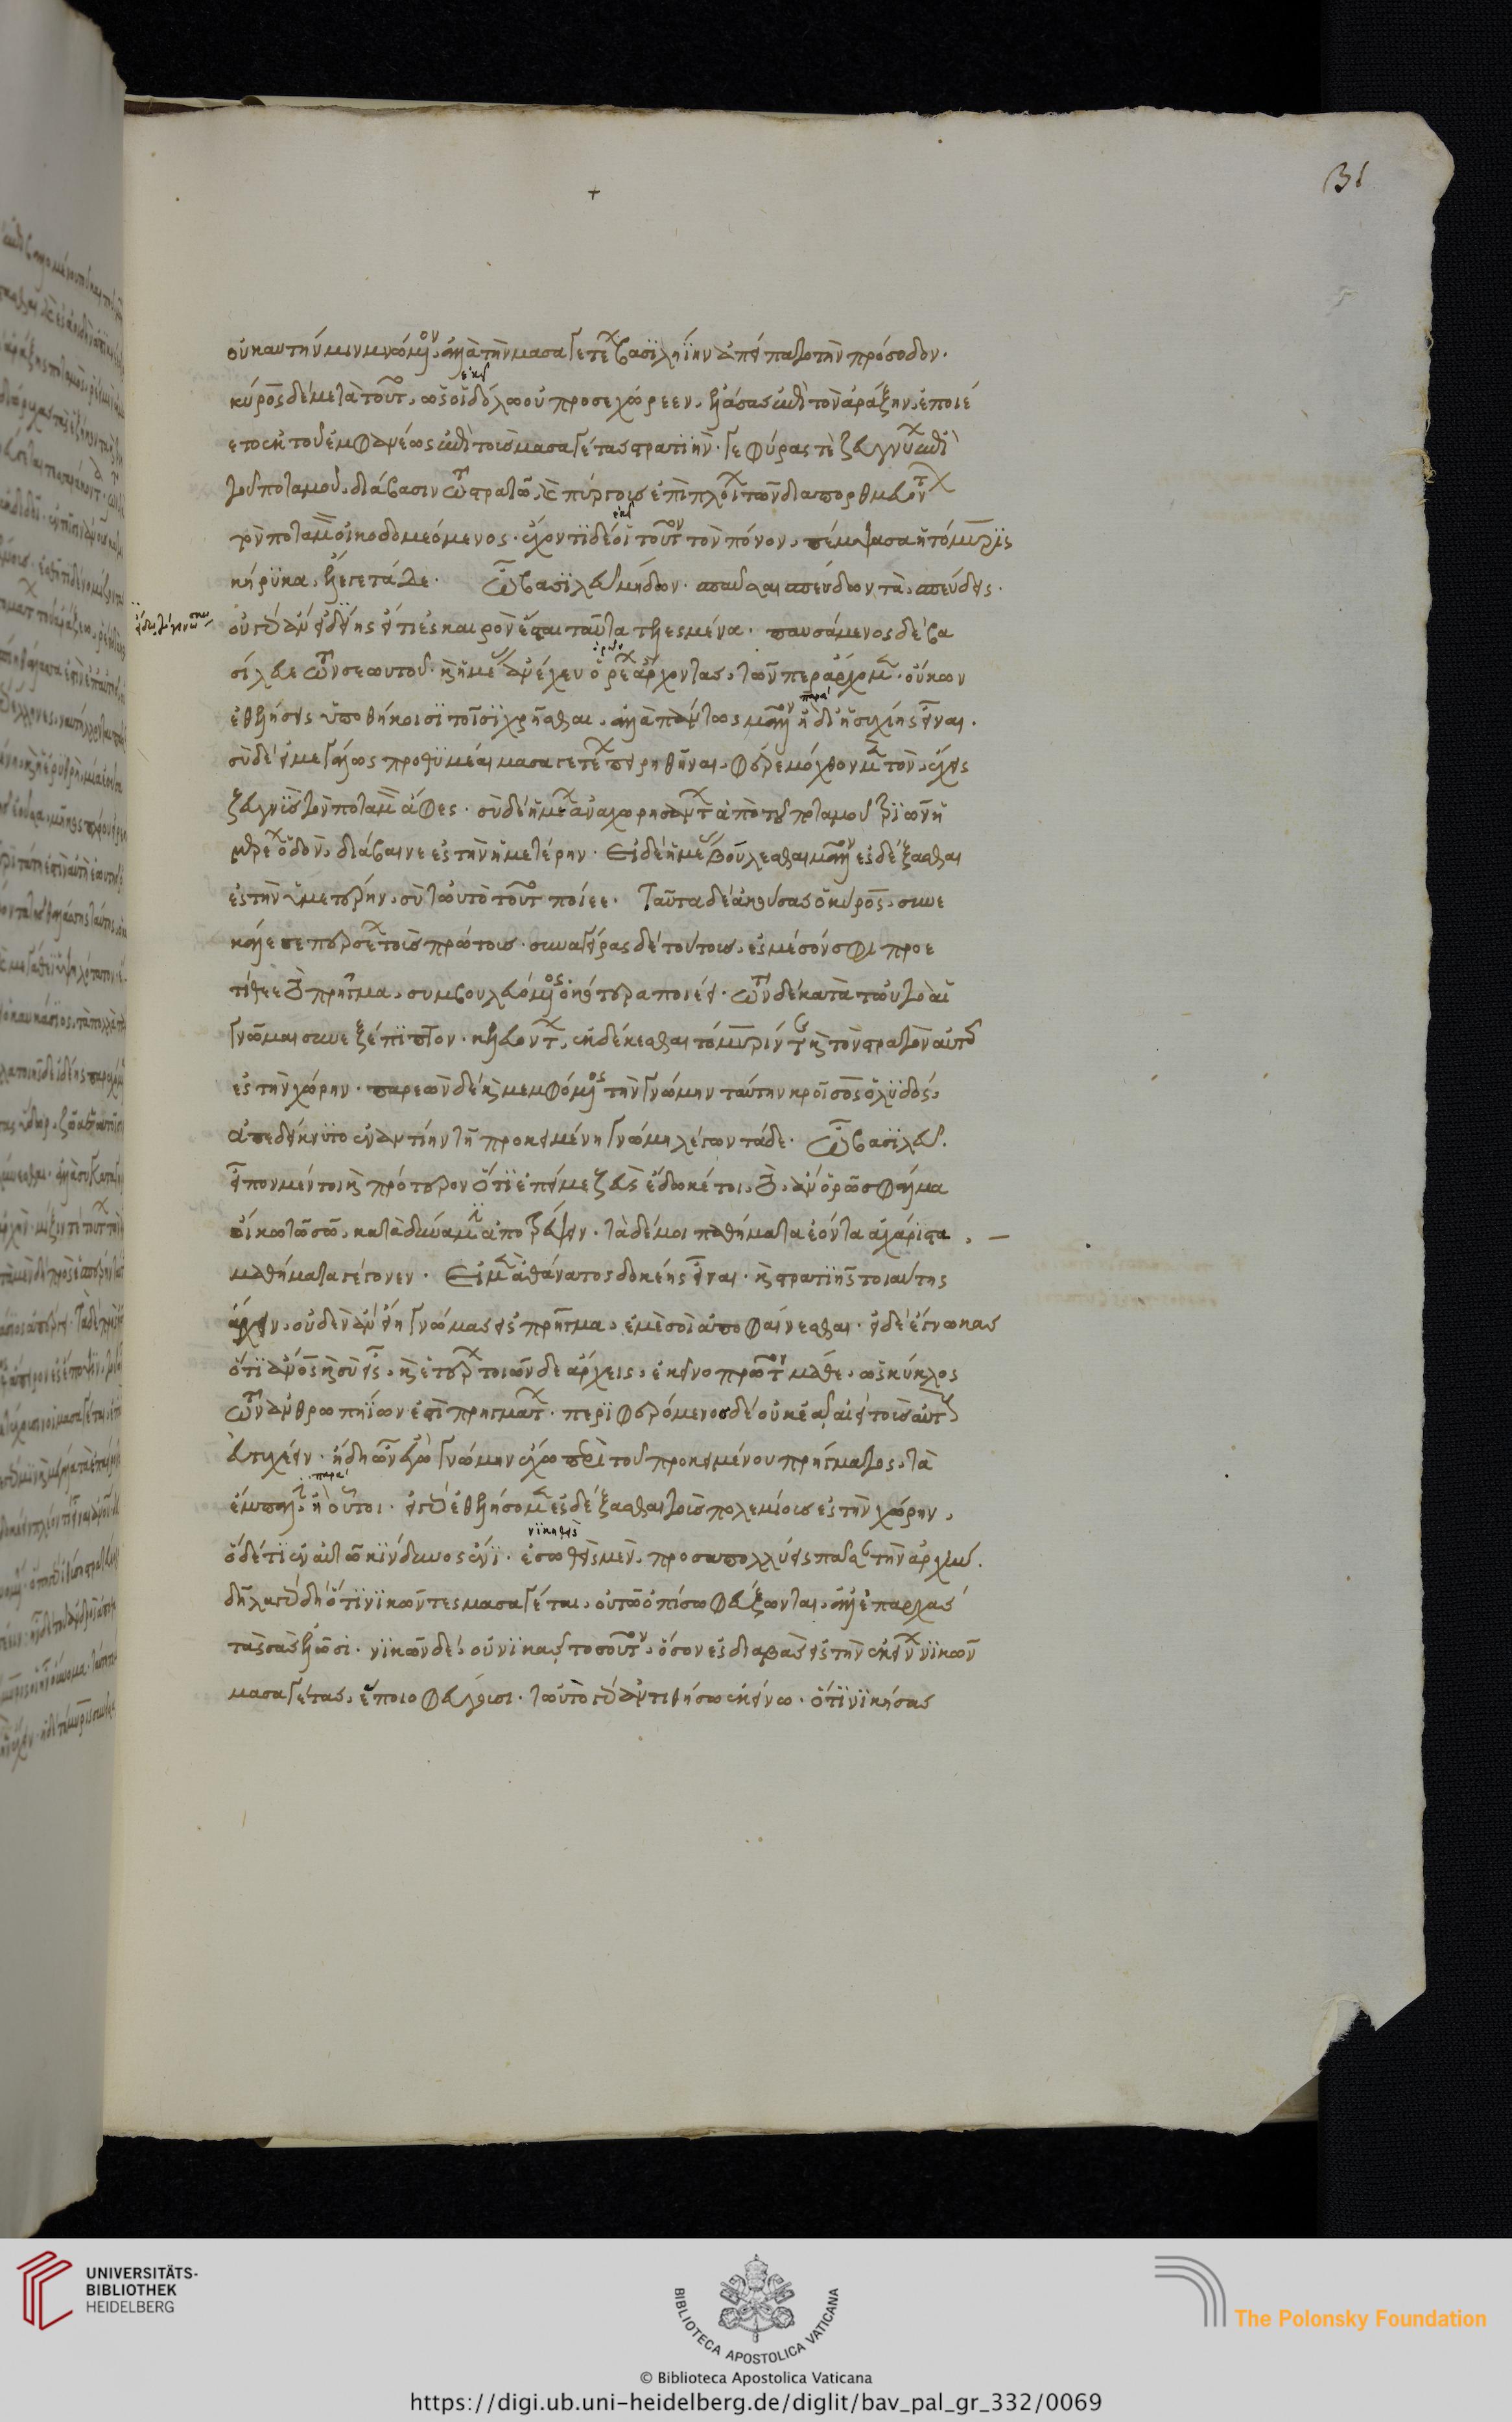 31
οὐκ αυτήν μιν μνώμενον. ἀλλὰ τὴν μασαγετέων βασιληίην ἀπείπατο τὴν πρόσοδον.
κῦρος δὲ μετὰ τοῦτο, ὥς οἱ δόλω οὐ προσεχώρεεν, ἐλάσας ἐπὶ τὸν ἀράξην, ἐποιέ
ετο ἐκ τοῦ ἐμφανέως ἐπὶ τοὺς μασαγέτας στρατιην. γεφύρας τὲ ζευγνύων ἐπὶ
τοῦ ποταμοῦ, διάβασιν τῶ στρατῶ, καὶ πύργους ἐπὶ πλοίων τῶν διαπορθμευόντων
τὸν ποταμὸν οἰκοδομεόμενος. ἔχοντι δέ οἱ τοῦτον τὸν πόνον, πέμψασα ἡ τόμυρις
κήρυκα, ἔλεγε τάδε. Ὦ βασιλεῦ μήδων. παῦσαι σπεύδων τὰ σπεύδεις.
οὐ γὰρ ἂν εἰδείης εἴ τι ἐς καιρὸν ἔσται ταῦτα τελεσμένα. παυσάμενος δὲ βα
σίλευε τῶν σεωυτοῦ. καὶ ἡμέας ἀνέχευ ὁρέων ἄρχοντας, τῶν περ ἄρχομεν. οὔκων
ἐθελήσεις ὑποθήκοισι τοῖσι χρῆσθαι, ἀλλὰ πάντως μᾶλλον ἢ δι' ἡσυχίης εἶναι.
σὺ δὲ εἰ μεγάλως προθυμέαι μασαγετέων πειρηθῆναι, φέρε μόχθον μὲν τὸν ἔχεις
ζευγνὺς τὸν ποταμὸν ἄφες. σὺ δὲ ἡμέων ἀναχωρησάντων ἀπὸ τοῦ ποταμοῦ τριῶν ἡ
μερέων ὁδὸν, διάβαινε ἐς τὴν ἡμετέρην. Εἰ δὲ ἡμέας βούλεσθαι μᾶλλον ἐσδέξασθαι
ἐς τὴν ὑμετέρην, σὺ τωυτὸ τοῦτο ποίεε. Ταῦτα δὲ ἀκούσας ὁ κῦρος, συνε
κάλεσε περσέων τοὺς πρώτους. συναγείρας δὲ τούτους, ἐς μέσόν σφι προε
τίθεε τὸ πρῆγμα, συμβουλευόμενος ὁκότερα ποιέει. τῶν δὲ κατὰ τωὐτὸ αἱ
γνῶμαι συνεξέπιπτον. κελευόντων, ἐκδέκεσθαι τόμυρίν τε καὶ τὸν στρατὸν αὐτῆς
ἐς τὴν χώρην. παρεὼν δὲ καὶ μεμφόμενος τὴν γνώμην ταύτην κροῖσος ὁ λυδός,
ἀπεδείκνυτο ἐναντίην τῆ προκειμένη γνώμη λέγων τάδε. Ὦ βασιλεῦ.
εἶπον μέν τοι καὶ πρότερον ὅτι ἐπεί με ζεὺς ἔδωκέ τοι, τὸ, ἂν ὁρῶ σφάλμα
οἴκω τῶ σῶ, κατὰ δύναμιν ἀποτρέψειν. τὰ δέ μοι παθήματα ἐόντα ἀχάριστα, –
μαθήματα γέγονεν. Εἰ μὲν ἀθάνατος δοκέης εἶναι. καὶ στρατιῆς τοιαύτης
ἄρχειν, οὐδὲν ἂν εἴη γνώμας εἰς πρῆγμα, ἐμὲ σοὶ ἀποφαίνεσθαι. εἰ δὲ ἔγνωκας
ὅτι ἄνος καὶ σὺ εἶς, καὶ ἑτέρων τοιῶν δε ἄρχεις, ἐκεῖνο πρῶτον μάθε, ὡς κύκλος
τῶν ἀνθρωπηίων ἐστὶ πρηγμάτων. περιφερόμενος δὲ οὐκ ἐᾶ αἰεὶ τοὺς αὐτοὺς
εὐτυχέειν. ἤδη ὦν ἐγὼ γνώμην ἔχω περὶ τοῦ προκειμένου πρήγματος, τὰ
ἔμπαλιν ἢ οὗτοι. εἰ γὰρ ἐθελήσομεν ἐσδέξασθαι τοὺς πολεμίους ἐς τὴν χώρην,
ὅδέ τι ἐν αὐτῶ κίνδυνος ἔνι. ἑσωθεὶς μὲν, προσαπολλύεις πᾶσαν τὴν ἀρχήν.
δῆλα γὰρ δὴ ὅτι νικῶντες μασαγέται, οὐ τὸ ὀπίσω φεύξονται, ἀλλ' ἐπ' ἀρχὰς
τὰς σὰς ἐλῶσι. νικῶν δέ, οὐ νικᾶς τοσοῦτον, ὅσον ἐς διαβὰς εἰς τὴν ἐκείνων νικῶν
μασαγέτας, ἕποιο φεύγουσι. τωὐτὸ γὰρ ἀντιθήσω ἐκείνω. ὅτι νικήσας
UNIVERSITÄTS-
BIBLIOTHEK
HEIDELBERG
BIBLIOTECA APOSTOLICA VATICANA
The Polonsky Foundation
© Biblioteca Apostolica Vaticana
https://digi.ub.uni-heidelberg.de/diglit/bav_pal_gr_332/0069